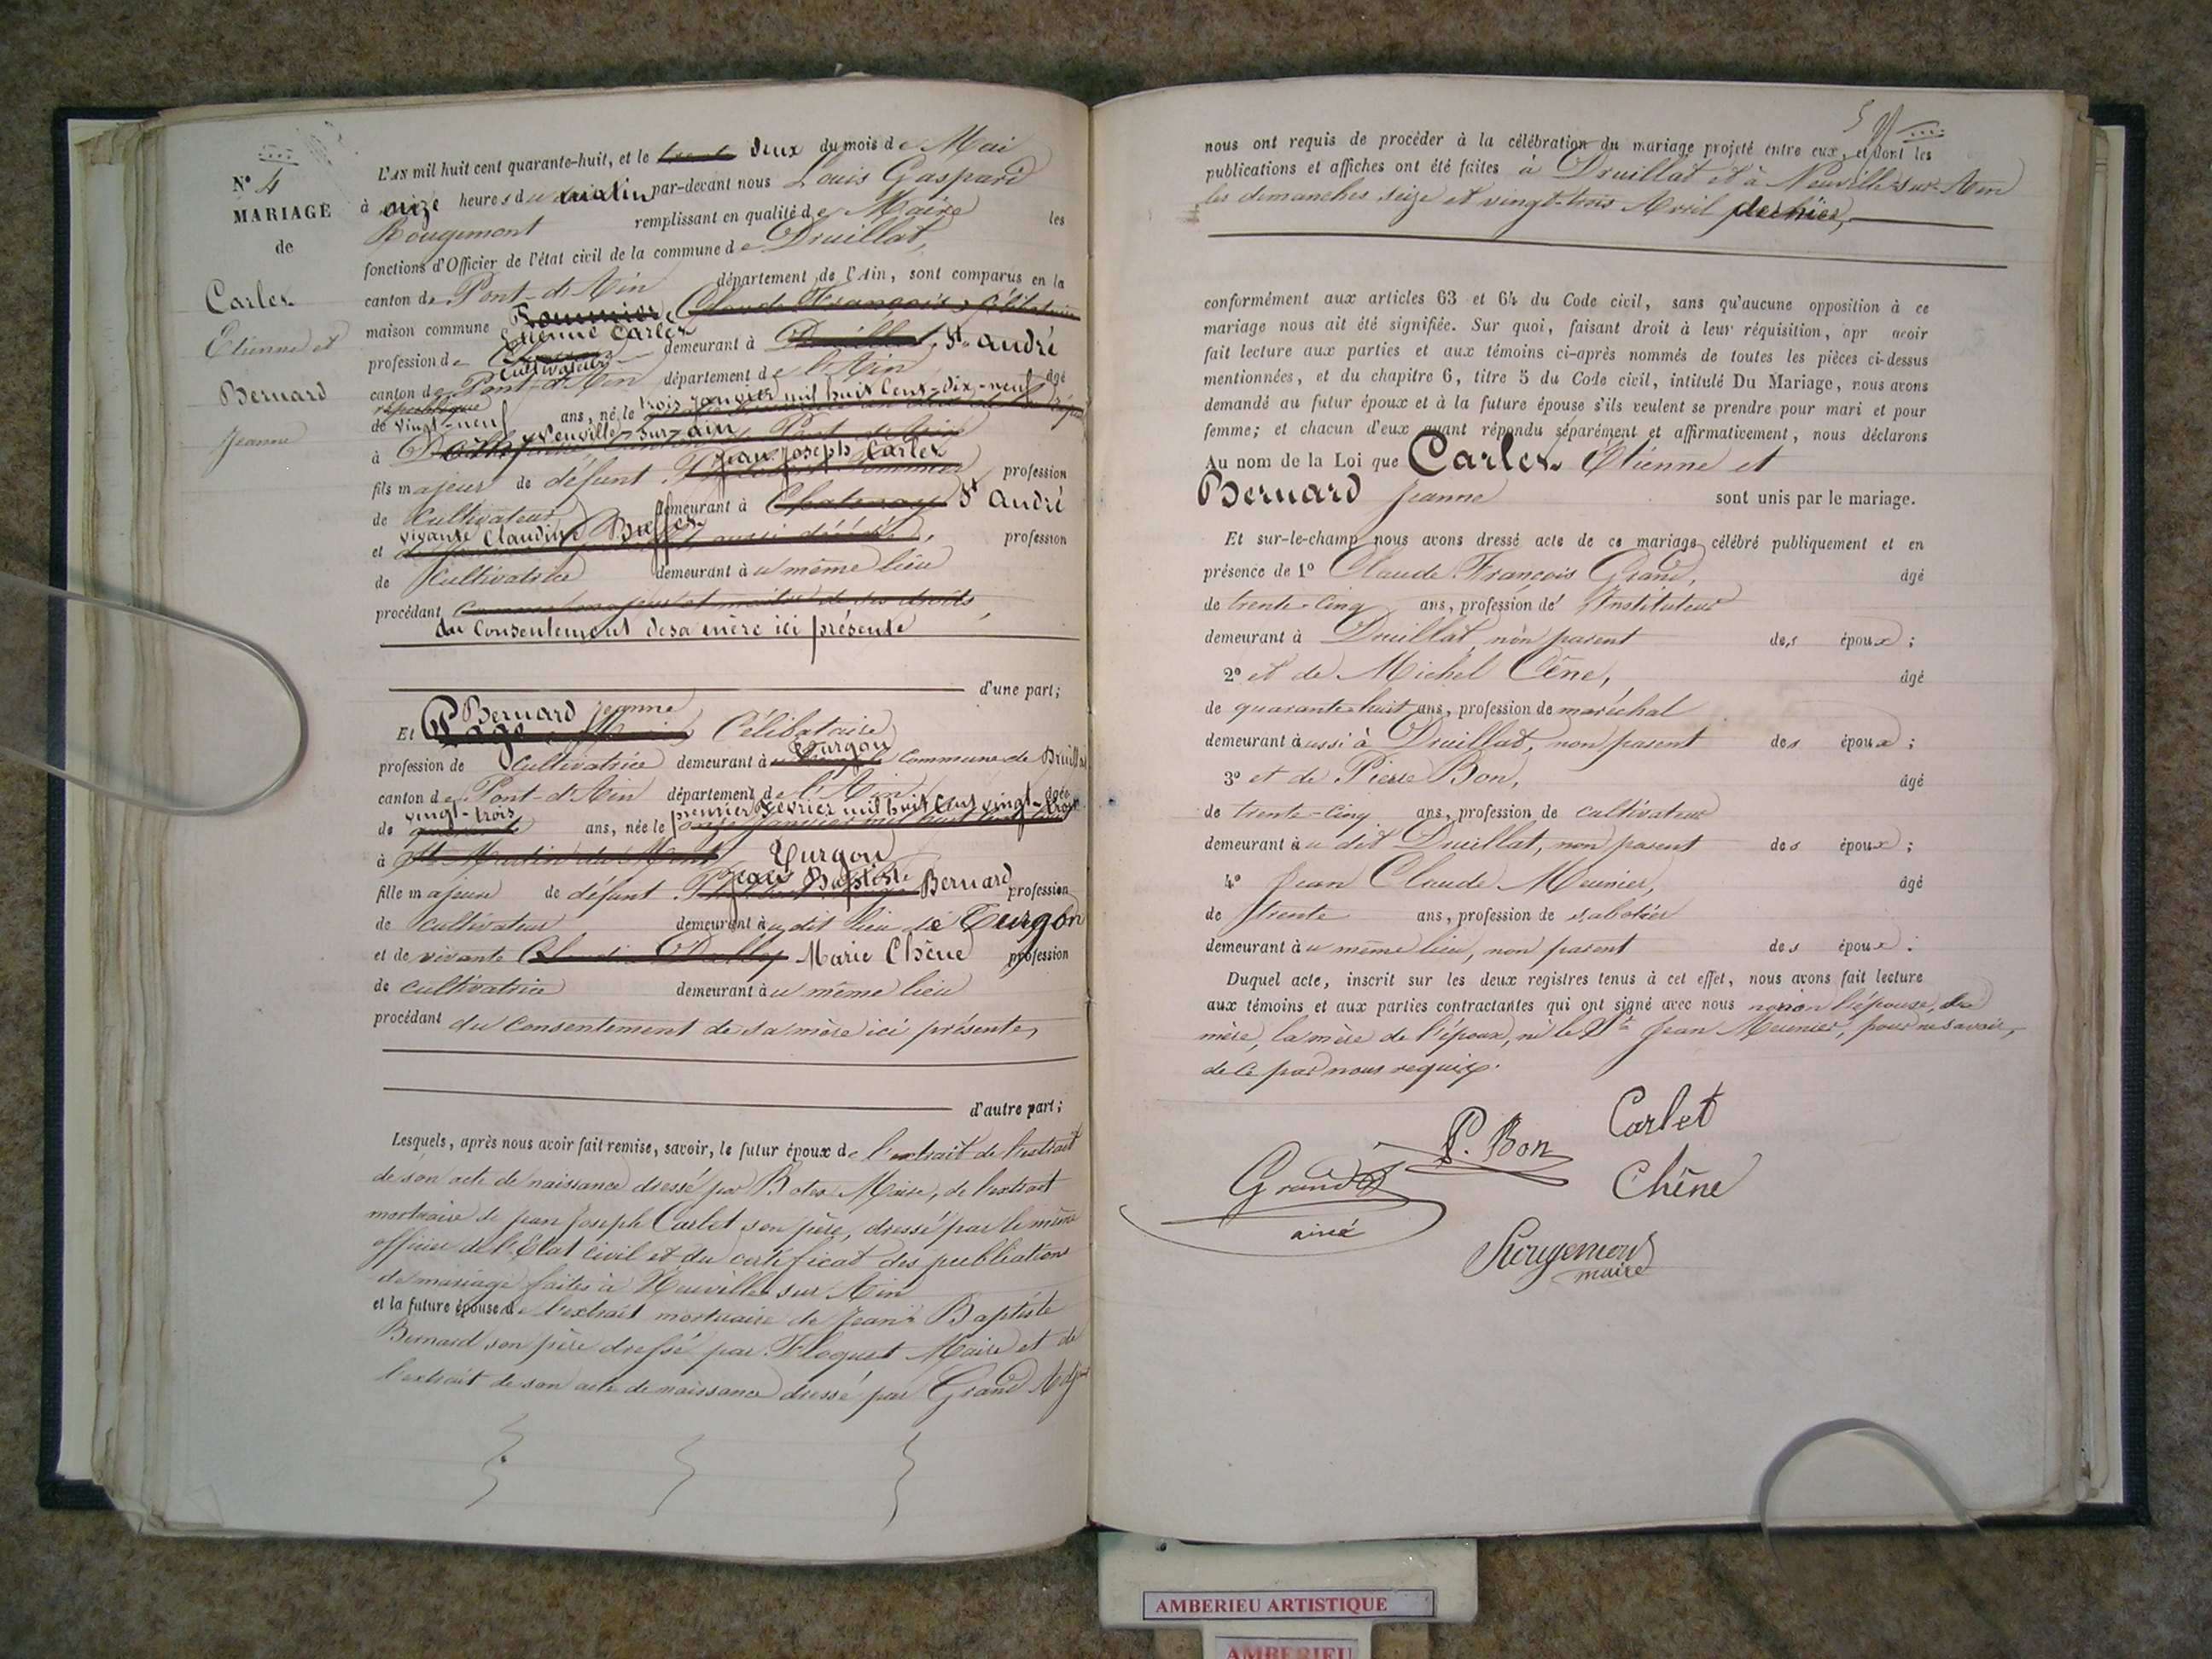 N° 4
MARIAGE
de
Carlet
Etienne et
Bernard
Jeanne
L'AN mil huit cent quarante-huit, et le deux du mois de Mai
à onze heures du matin par-devant nous Louis Gaspard
Rougemont remplissant en qualité de Maire les
fonctions d'Officier de l'état civil de la commune de Druillat,
canton de Pont-d'Ain département de l'Ain, sont comparus en la
maison commune Fournier, Claude François, célibataire
Etienne Carlet
profession de demeurant à Druillat, St André
Cultivateur
canton de Pont-d'Ain département de l'Ain âgé
république
de vingt-neuf ans, né le trois janvier mil huit cent-dix-neuf
à Neuville-sur-ain
fils majeur de défunt Jean Joseph Carlet profession
de Cultivateur demeurant à Chatenay St André
et vivante Claudine Buffet aussi décédée, profession
de Cultivatrice demeurant au même lieu
procédant comme majeur et maître de ses droits,
du Consentement de sa mère ici présente
d'une part;
Bernard Jeanne
Et Page Célibataire
profession de Cultivatrice demeurant à Turgon Commune de Druillat
canton de Pont-d'Ain département de l'Ain âgée
de vingt-trois ans, née le premier février mil huit cent vingt-trois
à St Martin du Mont Turgon
fille majeure de défunt Jean Baptiste Bernard profession
de Cultivateur demeurant au dit lieu de Turgon
et de vivante Marie Chêne profession
de cultivatrice demeurant au même lieu
procédant du Consentement de sa mère ici présente,
d'autre part;
Lesquels, après nous avoir fait remise, savoir, le futur époux de l'extrait de l'extrait
de son acte de naissance dressé par Maire, de l'extrait
mortuaire de jean Joseph Carlet son père, dressé par le même
officier de l'Etat civil et du certificat des publications
de mariage faites à Neuville sur Ain
et la future épouse de l'extrait mortuaire de Jean Baptiste
Bernard son père dressé par Floquet Maire et de
l'extrait de son acte de naissance dressé par Grand Adjoint
5
nous ont requis de procéder à la célébration du mariage projeté entre eux, et dont les
publications et affiches ont été faites à Druillat et à Neuville-sur-Ain
les dimanches seize et vingt-trois Avril dernier,
conformément aux articles 63 et 64 du Code civil, sans qu'aucune opposition à ce
mariage nous ait été signifiée. Sur quoi, faisant droit à leur réquisition, apr avoir
fait lecture aux parties et aux témoins ci-après nommés de toutes les pièces ci-dessus
mentionnées, et du chapitre 6, titre 5 du Code civil, intitulé Du Mariage, nous avons
demandé au futur époux et à la future épouse s'ils veulent se prendre pour mari et pour
femme; et chacun d'eux ayant répondu séparément et affirmativement, nous déclarons
Au nom de la Loi que Carlet Etienne et
Bernard Jeanne sont unis par le mariage.
Et sur-le-champ nous avons dressé acte de ce mariage célébré publiquement et en
présence de 1° Claude François Grand, âgé
de trente-cinq ans, profession de Instituteur
demeurant à Druillat, non parent des époux;
2° et de Michel Cêne, âgé
de quarante-huit ans, profession de maréchal
demeurant aussi à Druillat, non parent des époux;
3° et de Pierre Bon, âgé
de trente-cinq ans, profession de cultivateur
demeurant au dit Druillat, non parent des époux;
4° Jean Claude Meunier, âgé
de trente ans, profession de sabotier
demeurant au même lieu, non parent des époux.
Duquel acte, inscrit sur les deux registres tenus à cet effet, nous avons fait lecture
aux témoins et aux parties contractantes qui ont signé avec nous non l'épouse, sa
mère, la mère de l'époux, ni le Sr Jean Meunier, pour ne savoir,
de ce par nous requis.
Carlet
P. Bon
Grand
ainé
Chêne
Rougemont
maire
AMBERIEU ARTISTIQUE
AMBERIEU